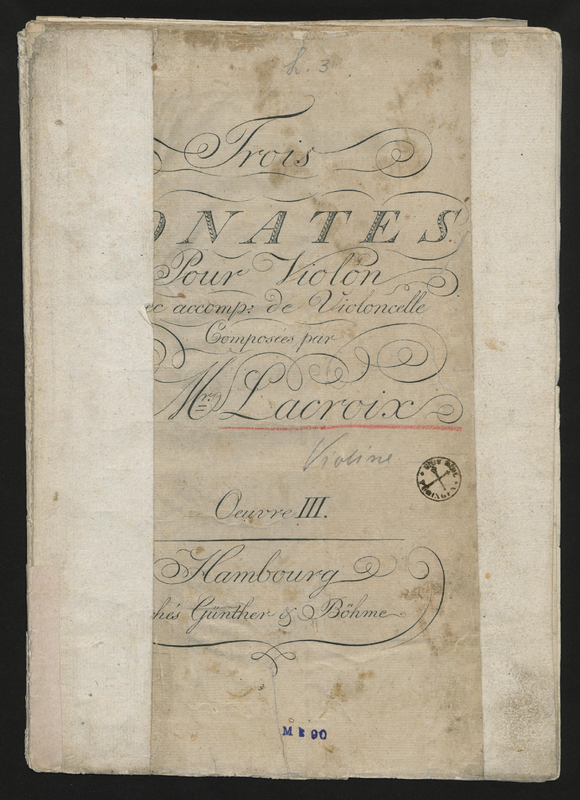 h. 3
Trois
ONATES
Pour Violon
ec accomp: de Violoncelle
Composées par
Mr. Lacroix
Violine
Oeuvre III.
Hambourg
chés Günther & Böhme
M 90